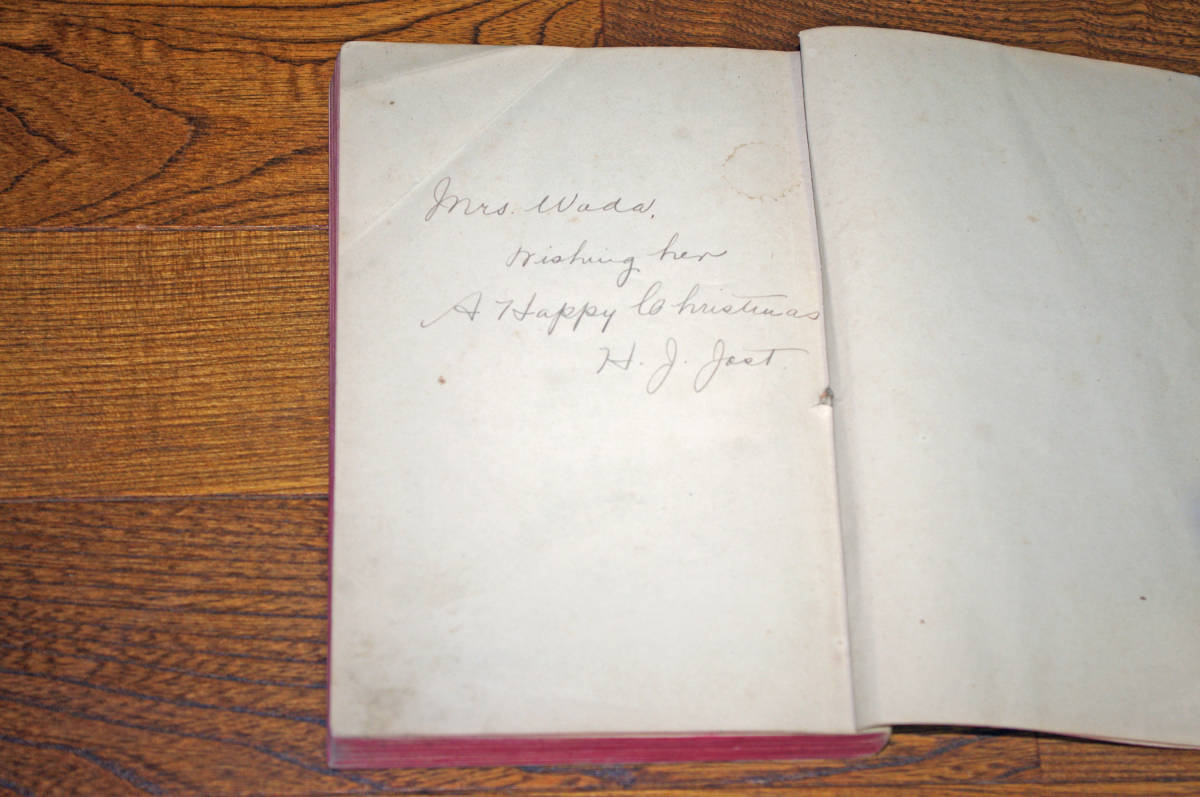 Mrs. Wada.
wishing her
A Happy Christmas
H. J. Jost.